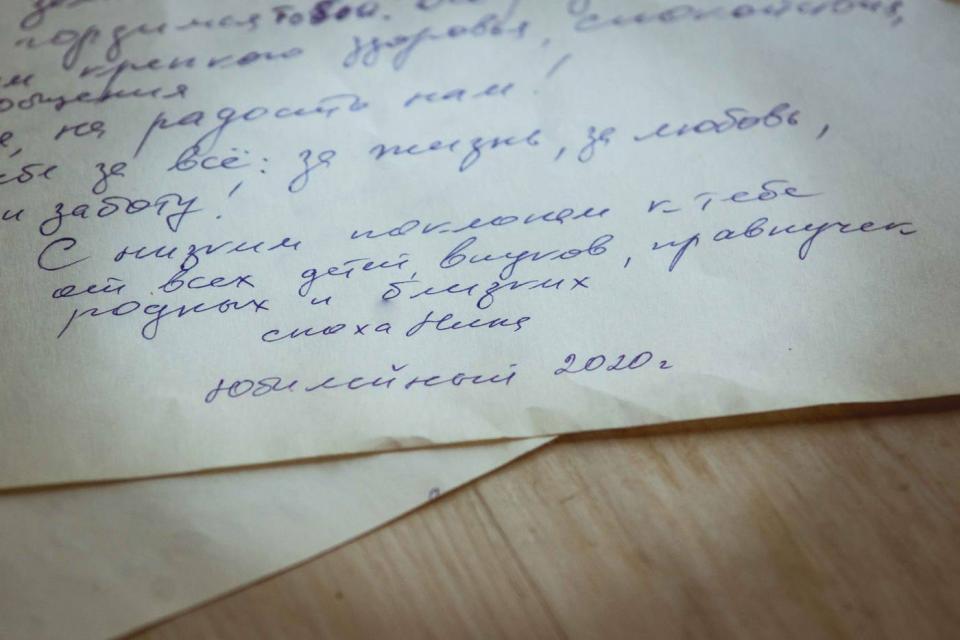 гордимся тобой.
крепкого здоровья, спокойствия,
общения
на радость нам!
за всё: за жизнь, за любовь,
и заботу!
С низким поклоном к тебе
от всех детей, внуков, правнучек
родных и близких
сноха Нина
Юбилейный 2020г